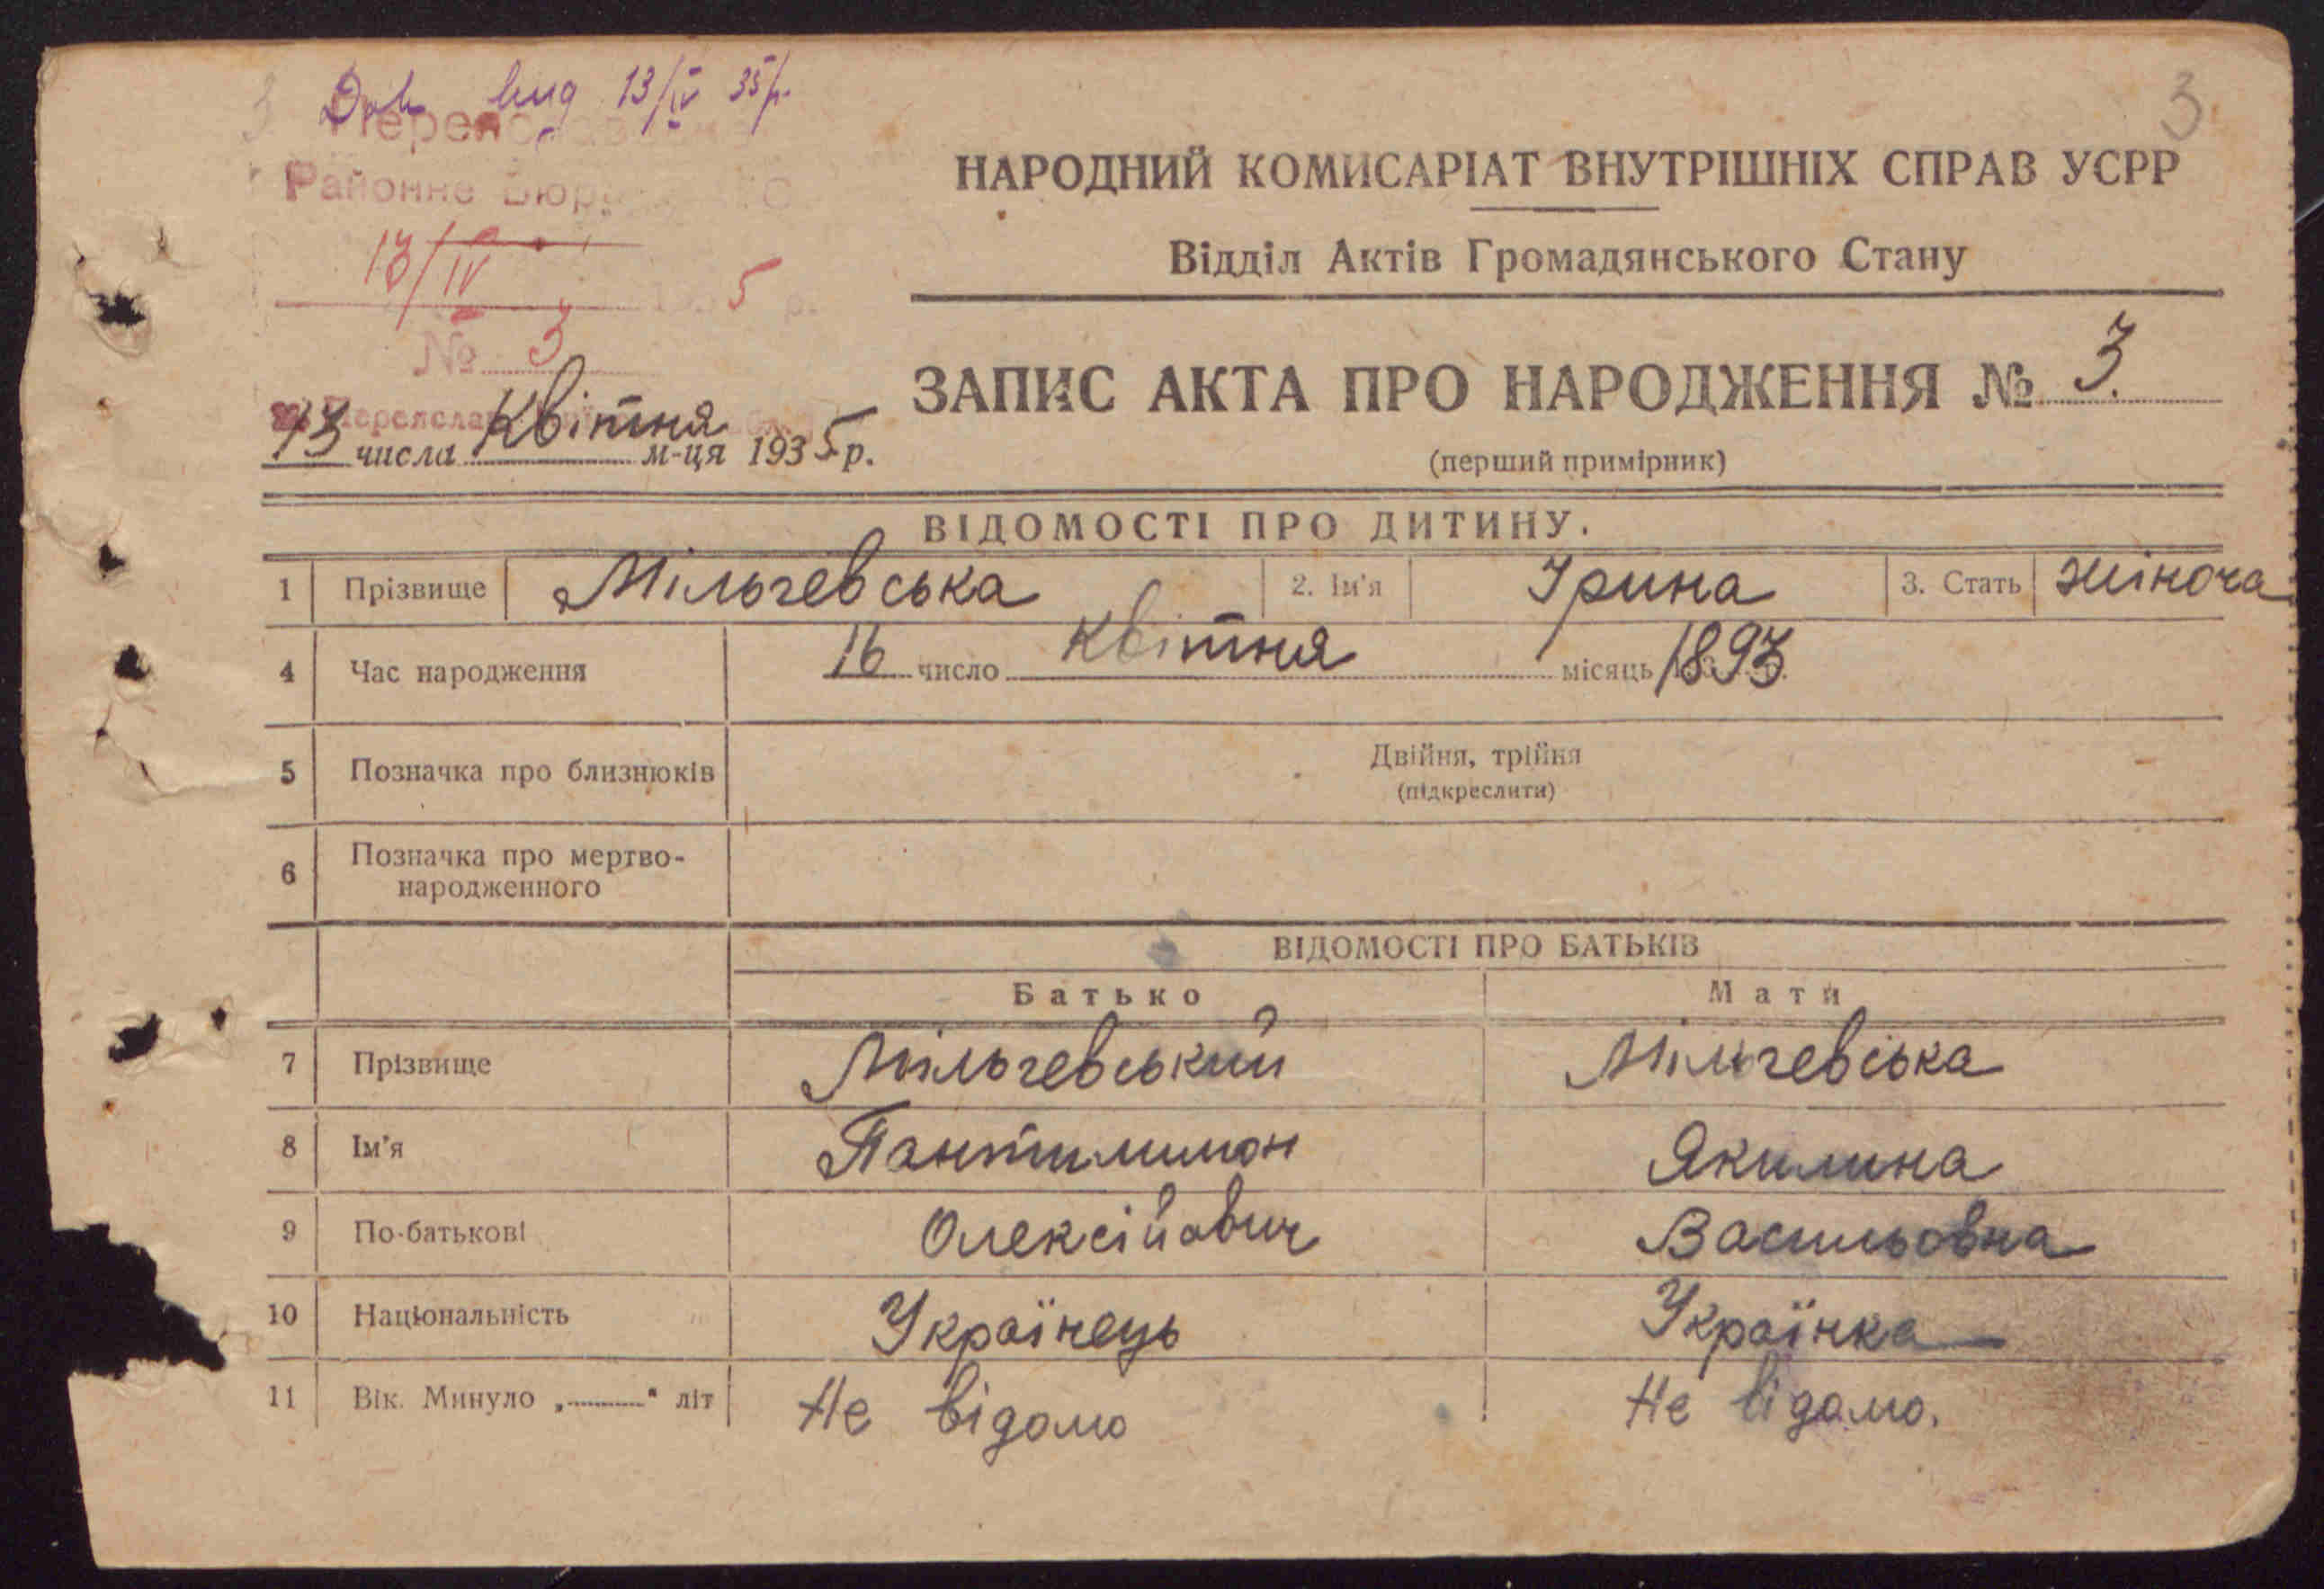 3
Довідку вид 13/IV 35 р.
Переяслав
Районне Бюро
13/IV 1935 р.
№ 3
13 числа Квітня м-ця 1935 р.
НАРОДНИЙ КОМИСАРІАТ ВНУТРІШНІХ СПРАВ УСРР
Відділ Актів Громадянського Стану
ЗАПИС АКТА ПРО НАРОДЖЕННЯ № 3.
(перший примірник)
ВІДОМОСТІ ПРО ДИТИНУ.
1 Прізвище Мільчевська 2. Ім'я Ірина 3. Стать жіноча
4 Час народження 16 число Квітня місяць 1893
5 Позначка про близнюків Двійня, трійня
(підкреслити)
6 Позначка про мертво-
народженного
ВІДОМОСТІ ПРО БАТЬКІВ
Батько Мати
7 Прізвище Мільчевський Мільчевська
8 Ім'я Пантилимон Якилина
9 По-батькові Олексійович Васильовна
10 Національність Українець Українка
11 Вік. Минуло „ “ літ Не відомо Не відомо.